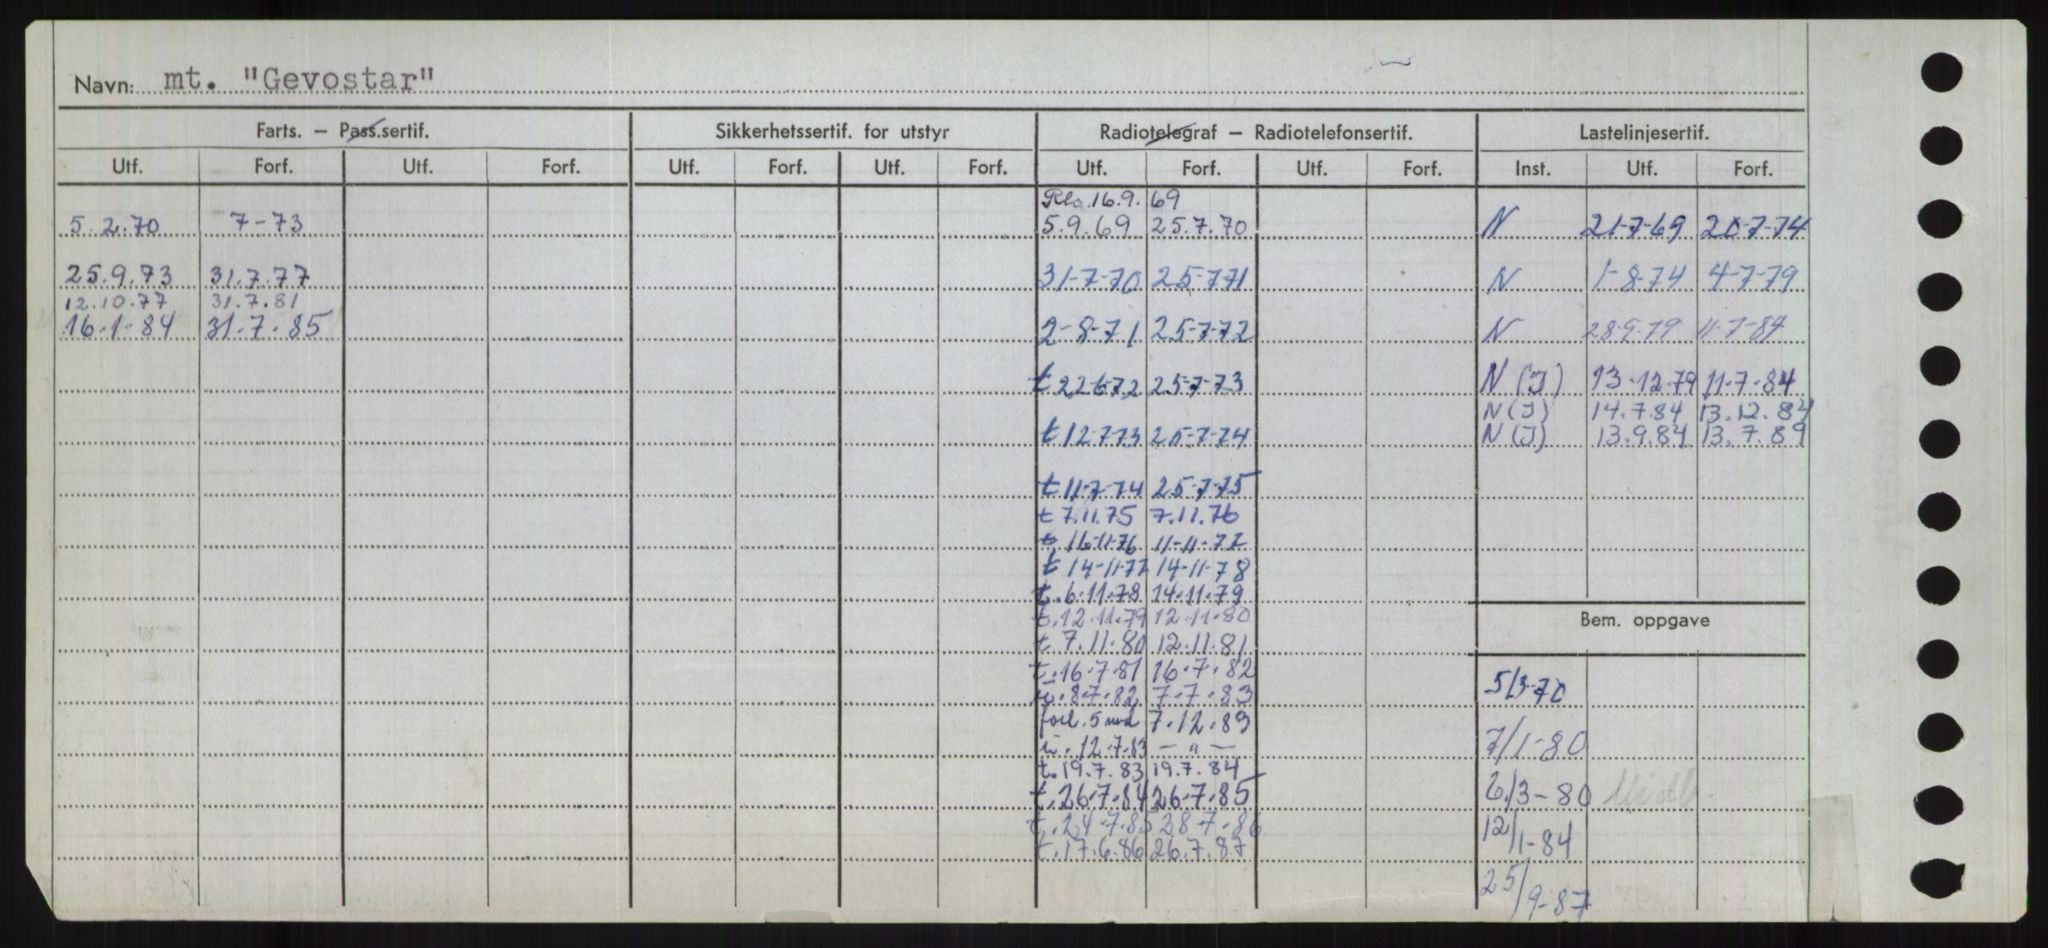 Navn: mt. "Gevostar"
Farts. – Pass.sertif. Sikkerhetssertif. for utstyr Radiotelegraf – Radiotelefonsertif. Lastelinjesertif.
Utf. Forf. Utf. Forf. Utf. Forf. Utf. Forf. Utf. Forf. Utf. Forf. Inst. Utf. Forf.
16.9.69
5.2.70 7-73 5.9.69 25.7.70 N 21-7-69 20-7-74
25.9.73 31.7.77 31-7-70 25-7-71 N 1-8-74 4-7-79
12.10.77 31.7.81
16.1-84 31.7.85 2-8-71 25-7-72 N 28-9-79 11-7-84
t 22-6-72 25-7-73 N (I) 13.12.79 11.7.84
N (I) 14.7.84 13.12.84
t 12-7-73 25-7-74 N (I) 13.9.84 13.7.89
t 11-7-74 25-7-75
t 7.11.75 7.11.76
t 16-11-76 11-11-77
t 14-11-77 14-11-78
t.6.11.78 14.11.79
t.12.11.79 12.11.80
Bem. oppgave
t 7.11.80 12.11.81
t.16.7.81 16.7.82
5/3-70
8.7.82 7.7.83
forl. 5 mnd 7.12.83
7/1-80
12.7.83 — " —
t.19.7.83 19.7.84
t.26.7.84 26.7.85
6/3-80
t.24.7.85 28.7.86
12/1-84
t.17.6.86 26.7.87
25/9-87